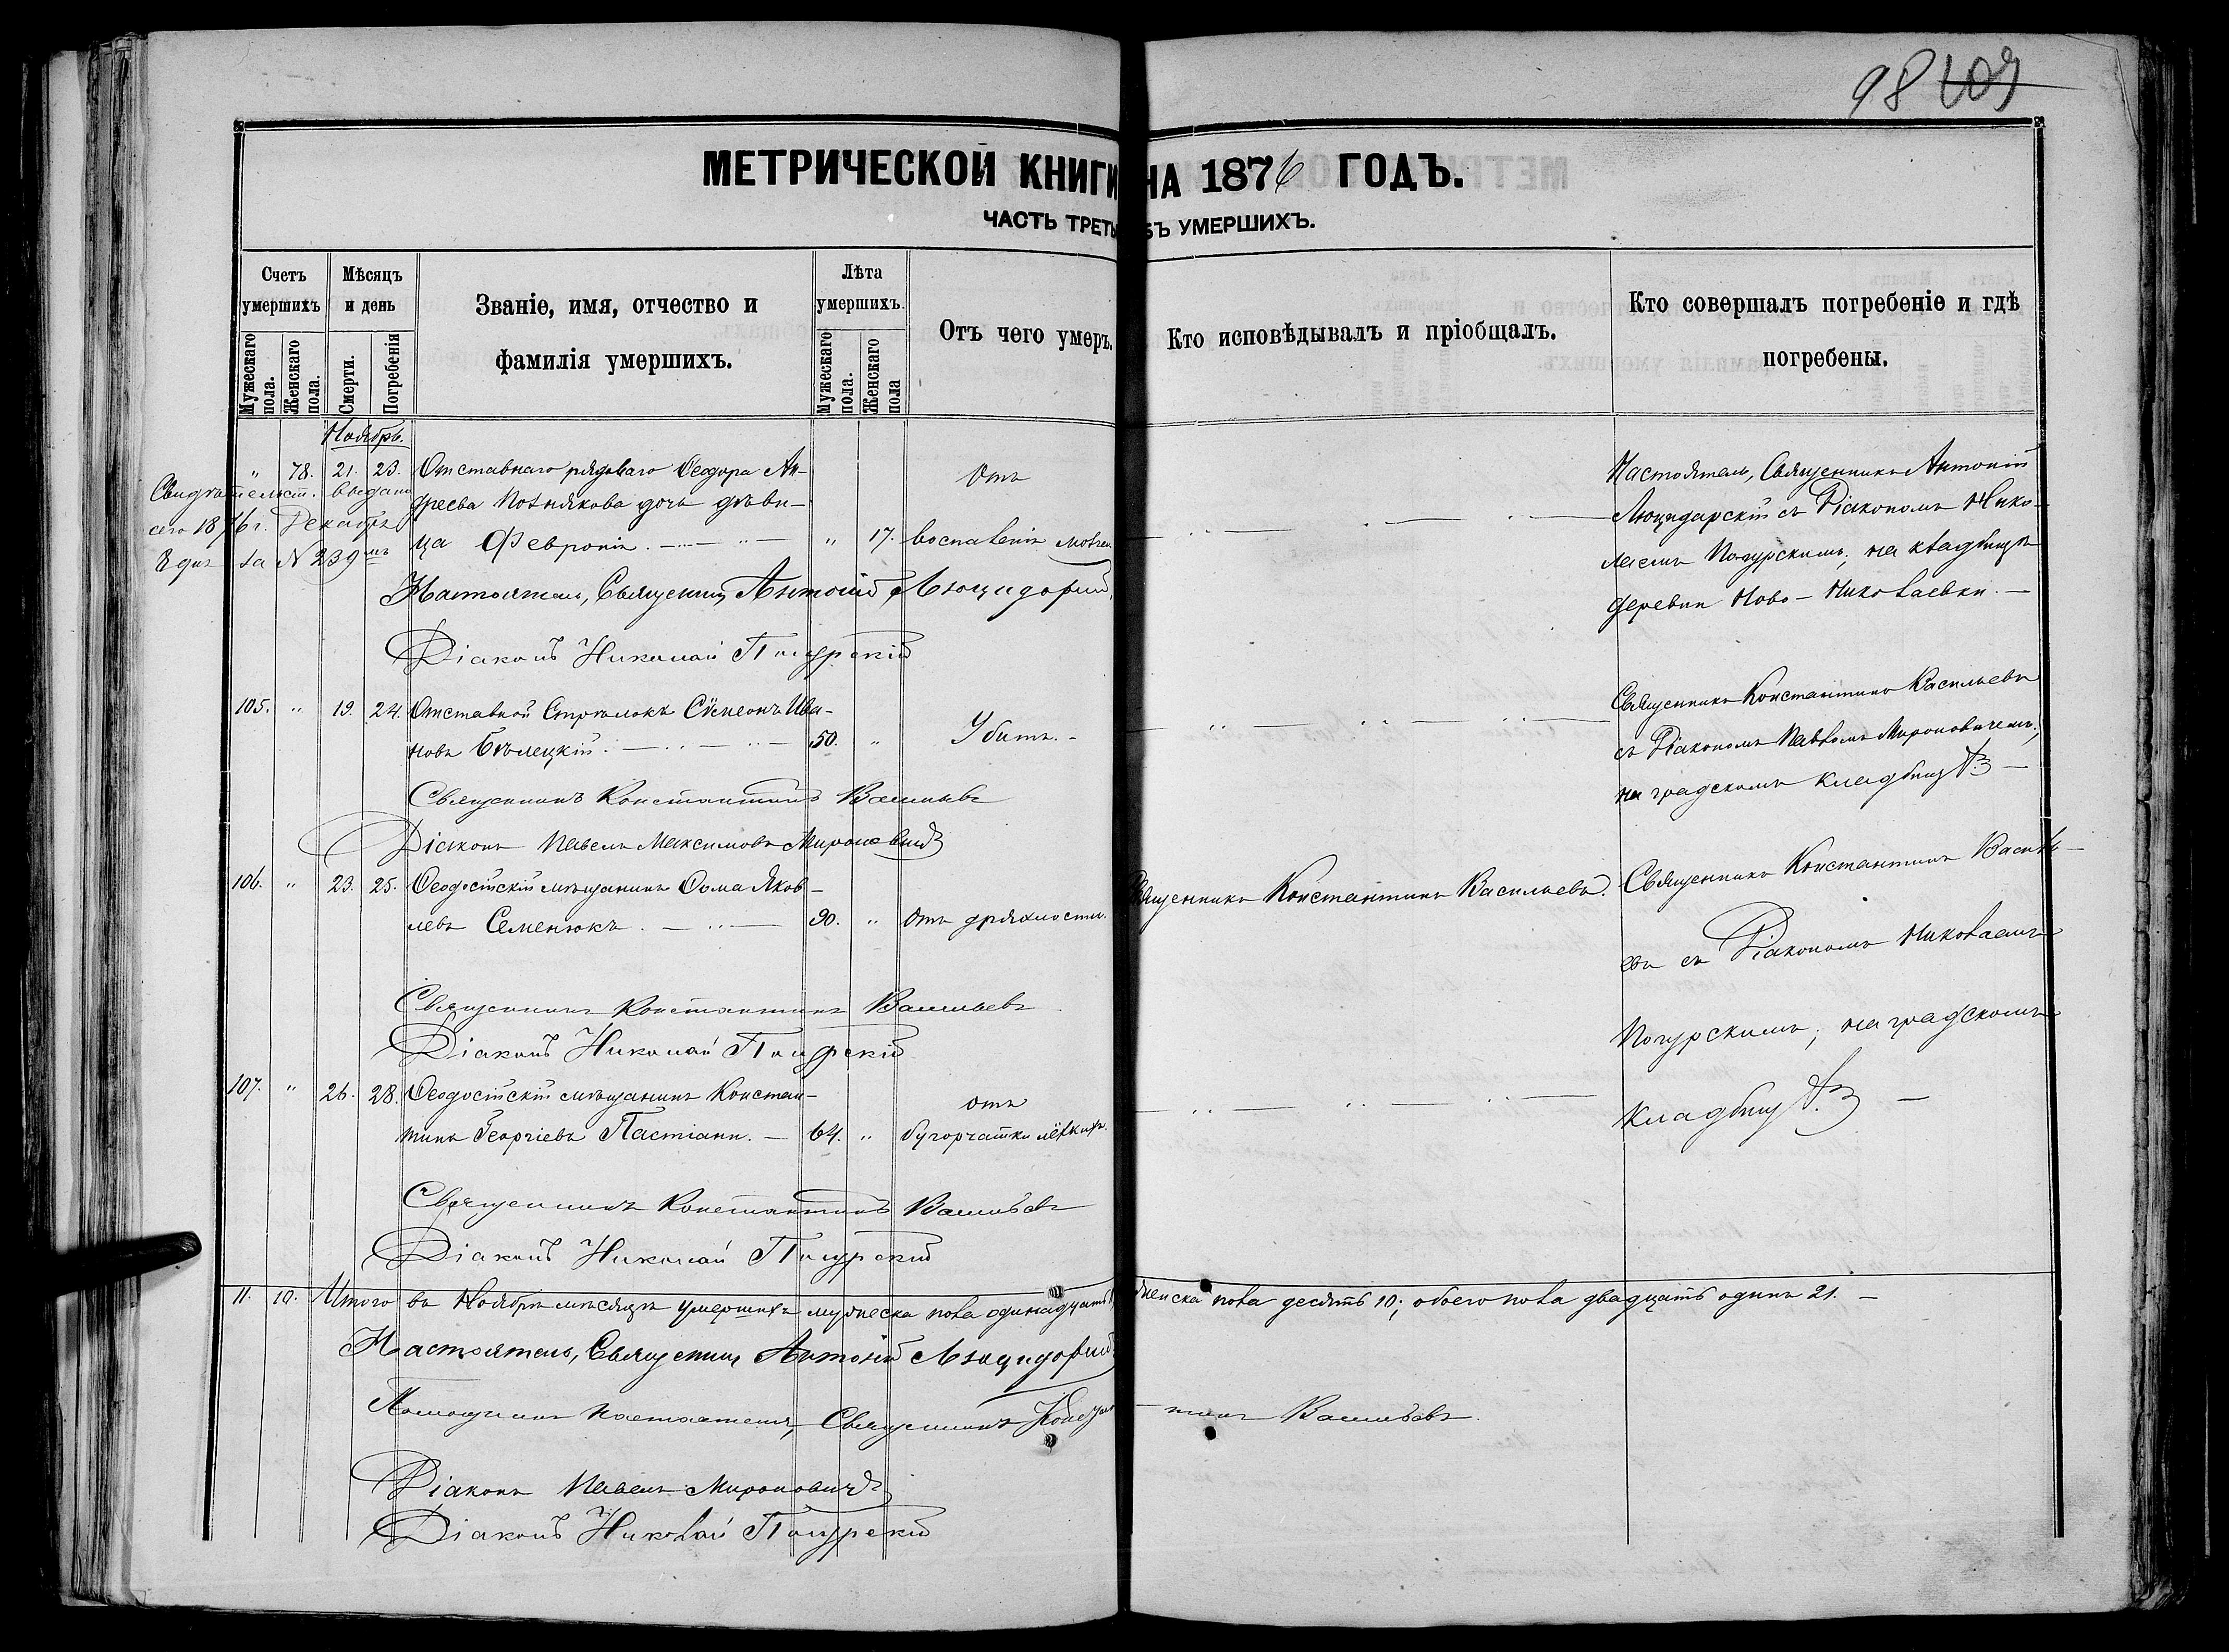 98 109
МЕТРИЧЕСКОЙ КНИГИ НА 1876 ГОДЪ.
ЧАСТЬ ТРЕТЬ БЪ УМЕРШИХЪ.
Счетъ умершихъ
Мужескаго пола.
Женскаго пола.
Мѣсяцъ и день
Смерти.
Погребенія
Званіе, имя, отчество и
фамилія умершихъ.
Лѣта умершихъ.
Мужескаго пола.
Женскаго пола
Отъ чего умеръ.
Кто исповѣдывалъ и пріобщалъ.
Кто совершалъ погребеніе и гдѣ
погребены.
Ноябрь.
" 78. 21. 23. Отставнаго рядоваго Ѳеодора Ан-
дреева Познякова дочь дѣви-
ца Февронія. " 17.
Отъ
воспаленія мозга
Свидѣтельст. выдано
сего 1876 г. Декабря
8 дня за N 239мъ
Настоятель, Священникъ Антоній
Люцидарскій съ Діакономъ Нико-
лаемъ Погурскимъ, на кладбищѣ
деревни Ново-Николаевки. —
Настоятель, Священникъ Антоній Люцидарскій
Діаконъ Николай Погурскій
105. " 19. 24. Отставной Стрѣлокъ Сѵмеонъ Ива-
новъ Бѣлецкій. 50. " Убитъ. -
Священникъ Константинъ Васильевъ
съ Діакономъ Павломъ Мироновичемъ,
на градскомъ кладбищѣ —
Священникъ Константинъ Васильевъ
Діаконъ Павелъ Максимовъ Мироновичъ
106. " 23. 25. Ѳеодосійскій мѣщанинъ Ѳома Яков-
левъ Семенюкъ. 90. " Отъ дряхлости.
Священникъ Константинъ Васильевъ.
Священникъ Константинъ Василь-
евъ съ Діакономъ Николаемъ
Погурскимъ, на градскомъ
кладбищѣ —
Священникъ Константинъ Васильевъ
Діаконъ Николай Погурскій
107. " 26. 28. Ѳеодосійскій мѣщанинъ Констан-
тинъ Георгіевъ Пастіани. — 64. "
отъ
бугорчатки лёгкихъ.
Священникъ Константинъ Васильевъ
Діаконъ Николай Погурскій
11. 10. Итого въ Ноябрѣ мѣсяцѣ умершихъ мужеска пола одинадцать женска пола десять 10; обоего пола двадцать одинъ 21. —
Настоятель, Священникъ Антоній Люцидарскій
Помощникъ настоятеля, Священникъ Констан-тинъ Васильевъ.
Діаконъ Павелъ Мироновичъ
Діаконъ Николай Погурскій